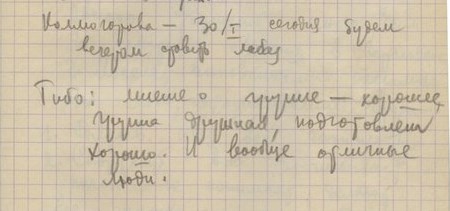 Колмогорова - 30/I сегодня будем
вечером ставить лабаз
Тибо: мнение о группе - хорошее,
группа дружная, подготовлена
хорошо. И вообще отличные
люди.